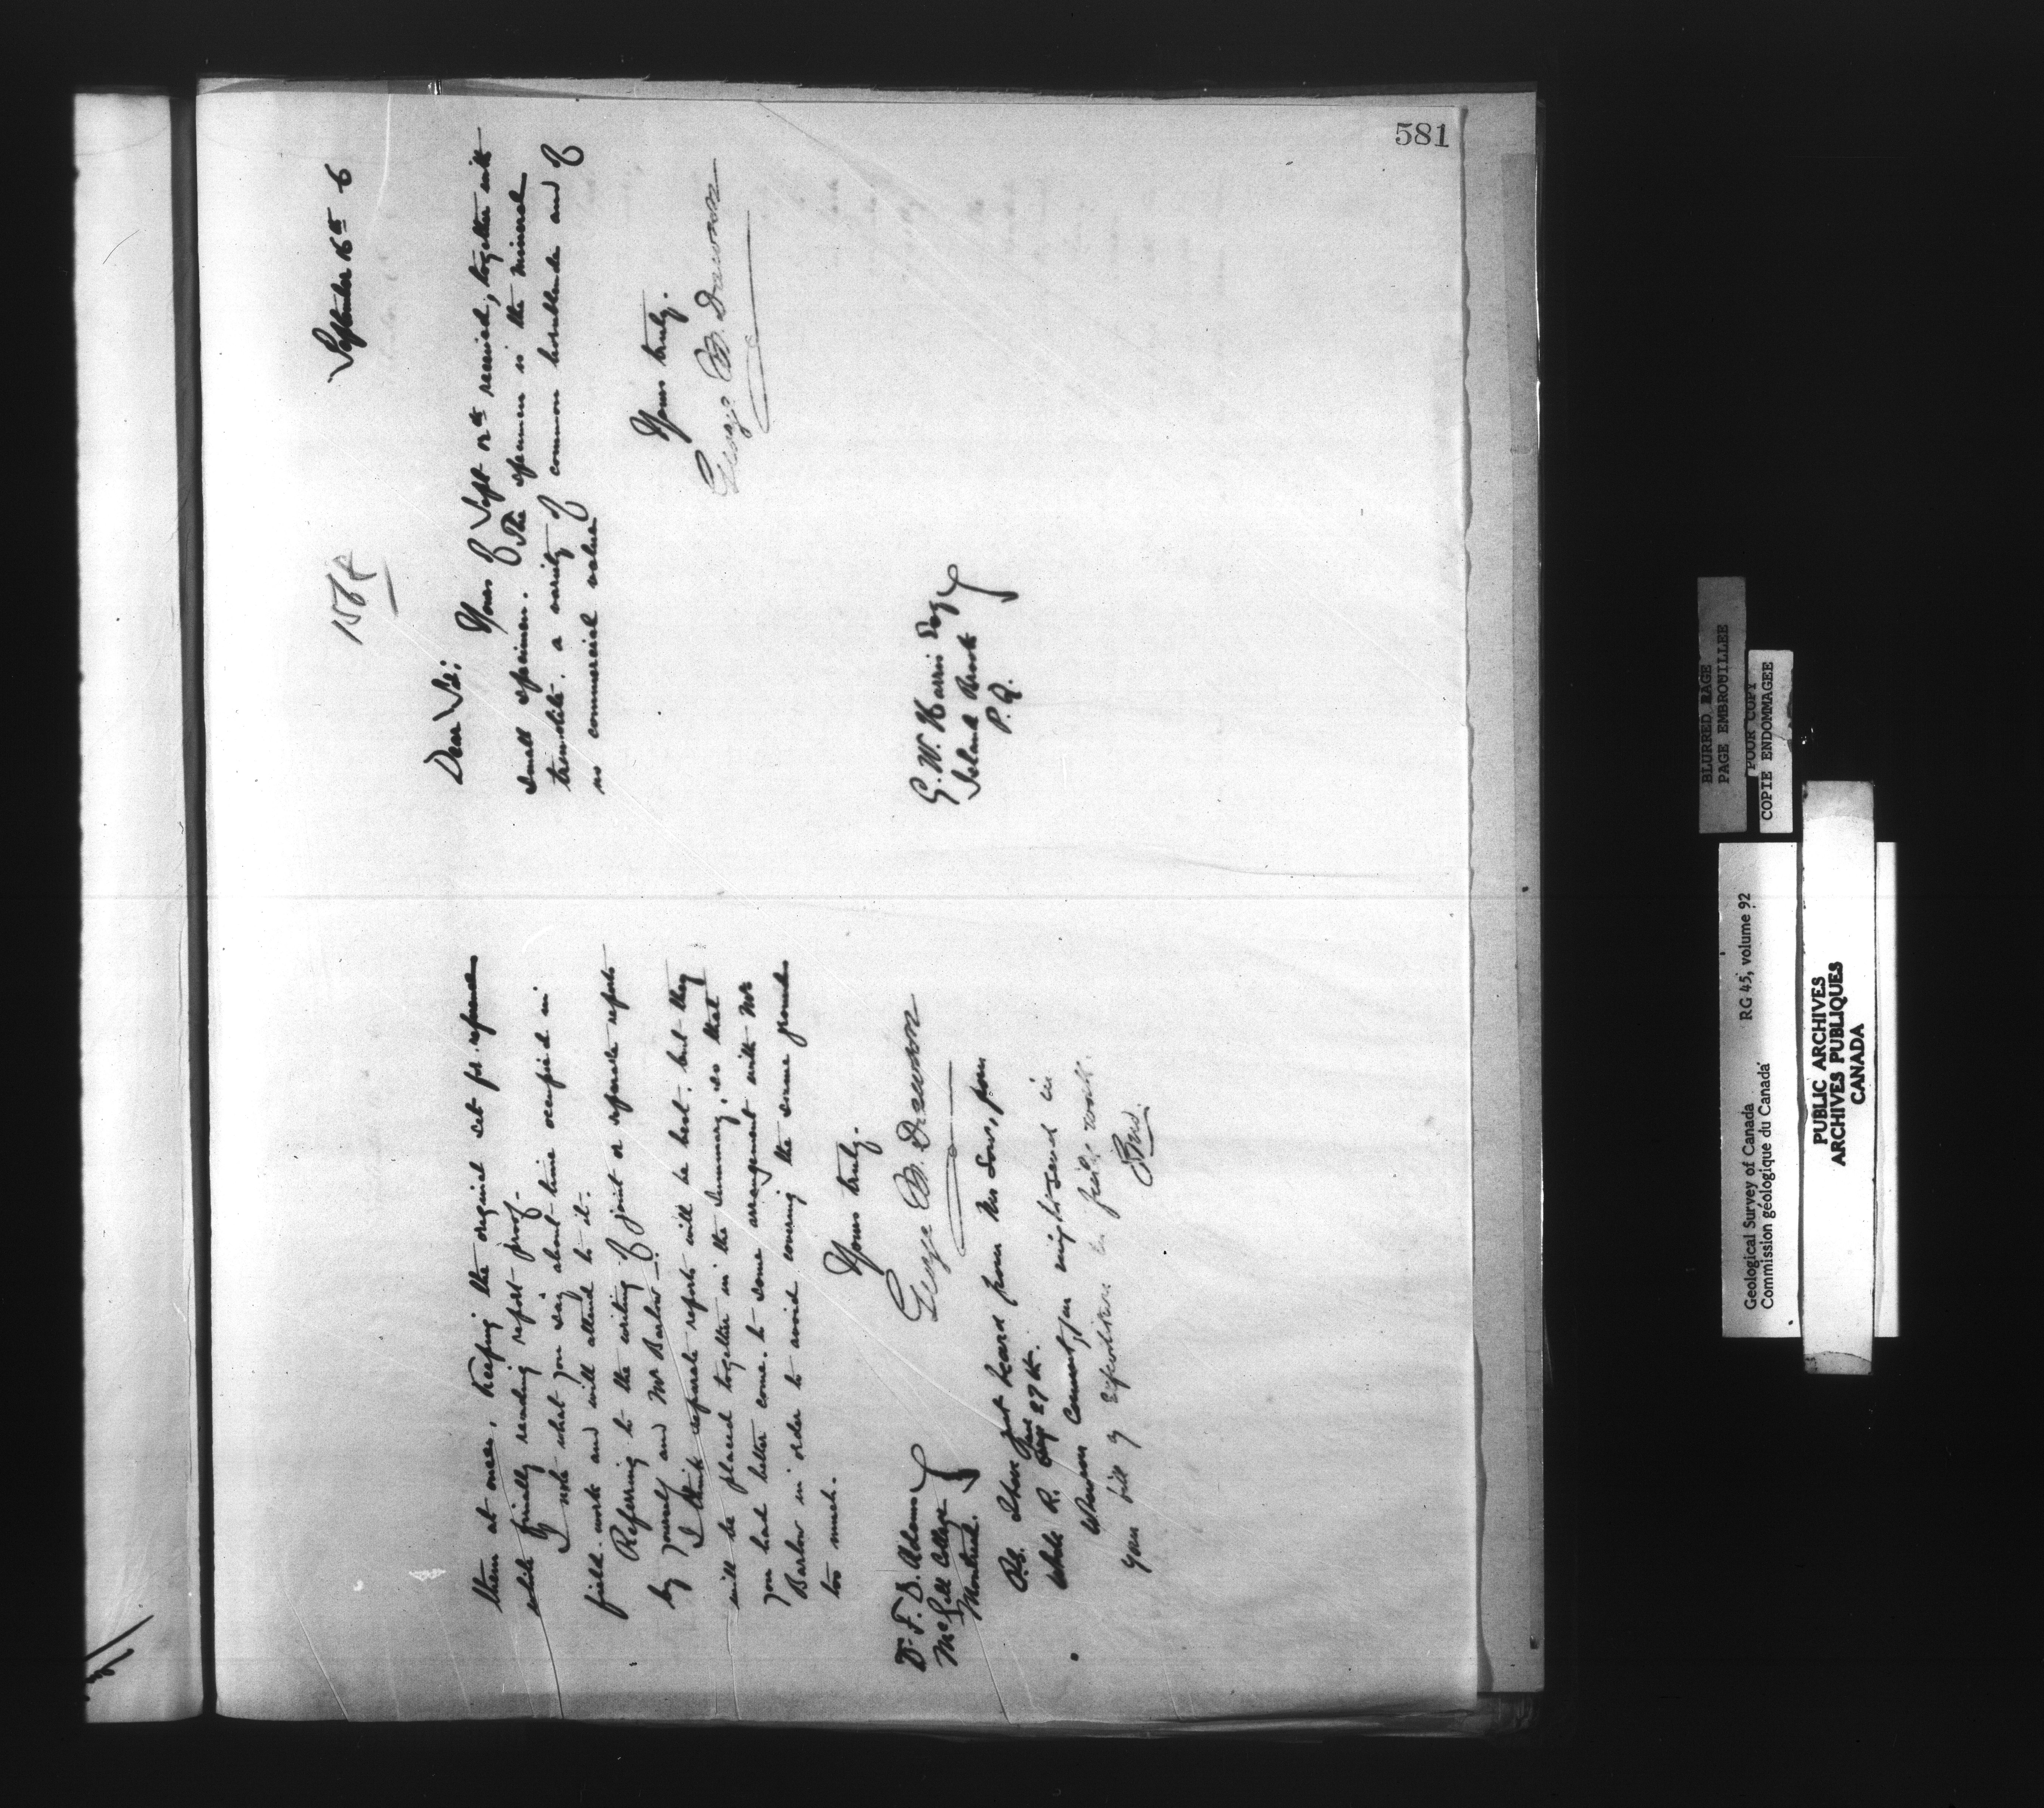 581
them at once. Keeping the original set for reference
while finally reading report proof.
I note what you say about time occupied in
field-work and will attend to it.
Referring to the writing of joint or separate reports
by yourself and Mr Barlow.
I think separate reports will be best, but they
will be placed together in the Summary, so that
you had better come to some arrangement with Mr
Barlow in order to avoid covering the same ground
too much.
Yours truly.
George M. Dawson
Dr F. D. Adams
McGill College
Montreal.
P.S. I have just heard from Mr Low, from
Whale R. Aug 27th.
Whenever convenient, you might send in
your bill of expenditure in field work.
GMD.
September 16th 6
1568
Dear Sir:
Yours of Sept 12th received, together with
small specimen. The specimen is the mineral
tremolite, a variety of common hornblende and of
no commercial value
Yours truly.
George M. Dawson
G. W. Harris Esq
Island Brook
P.Q.
BLURRED PAGE
PAGE EMBROUILLEE
POOR COPY
COPIE ENDOMMAGEE
Geological Survey of Canada RG 45, volume 92
Commission géologique du Canada
PUBLIC ARCHIVES
ARCHIVES PUBLIQUES
CANADA